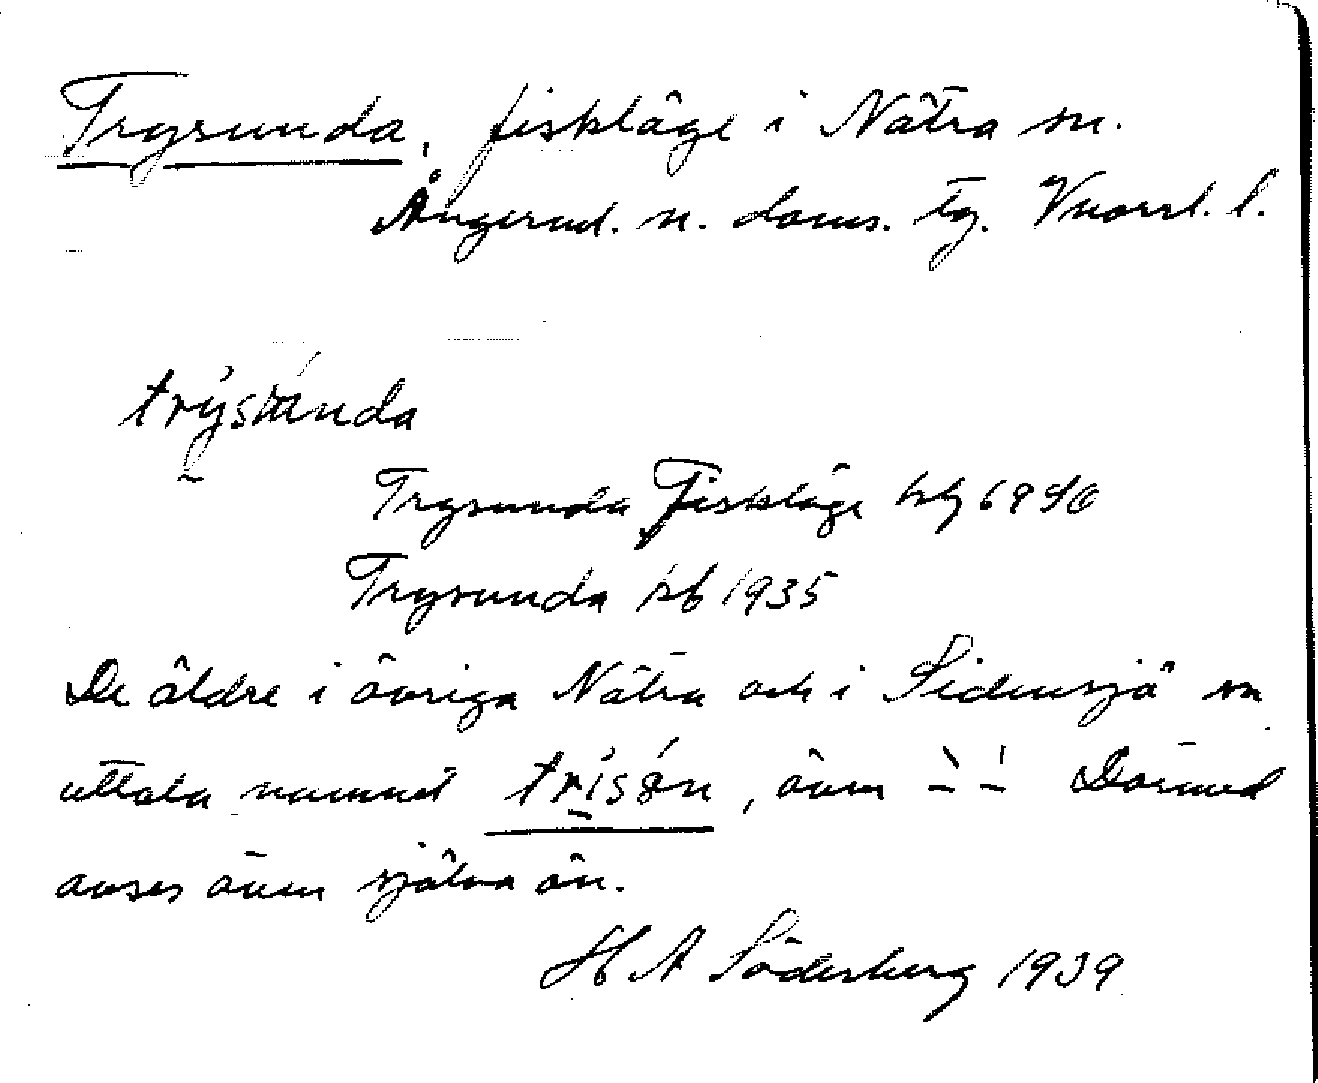 Trysunda, fiskläge i Nätra sn.
Ångerml. n. doms. tg. Vnorrl. l.
Trysunda Fiskläge
Trysunda kb 1935
De äldre i övriga Nätra och i Sidensjö sn
uttala namnet trisǿn, även Därmed
avses även själva ön.
H A Söderberg 1939